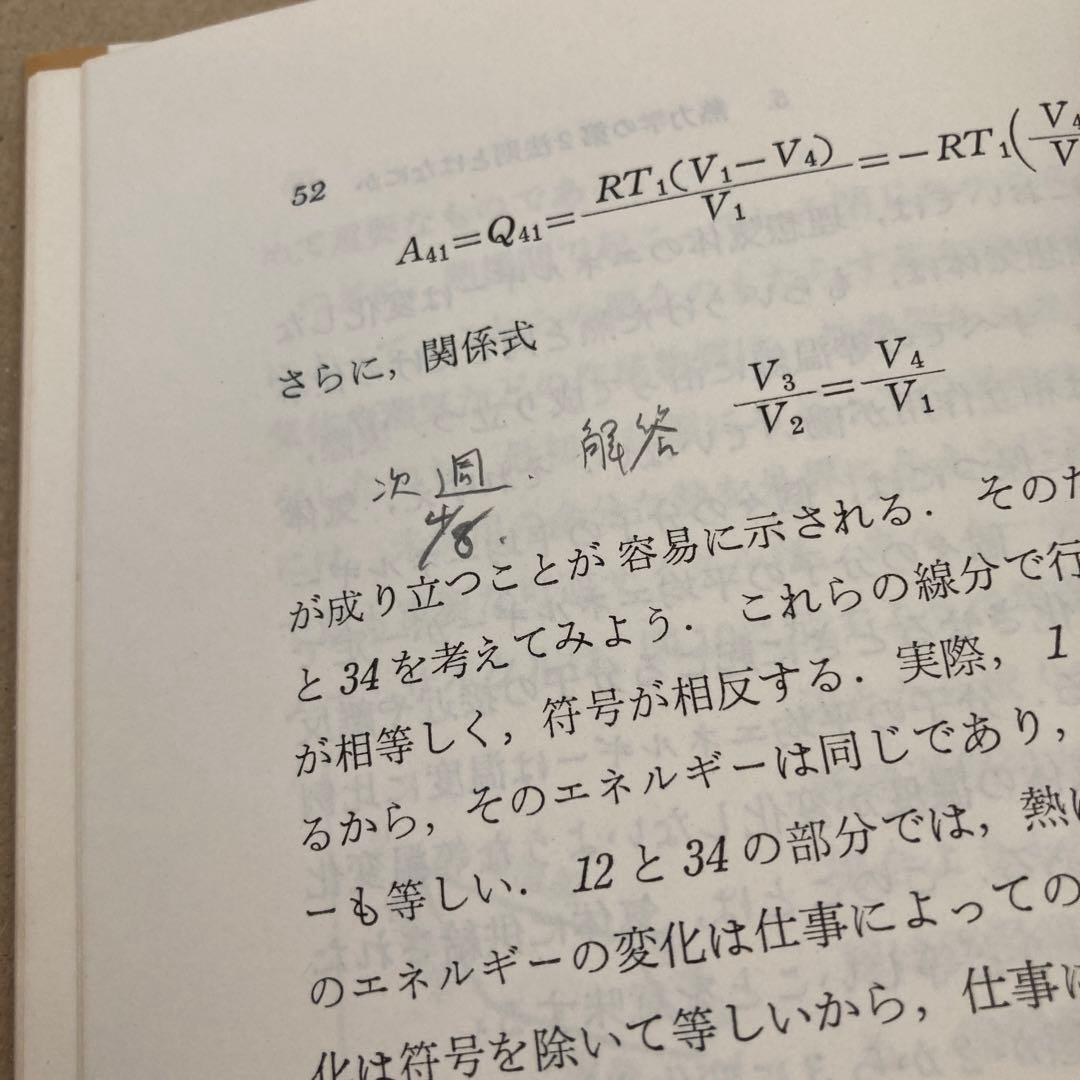 52
A₄₁=Q₄₁=RT₁(V₁−V₄)/V₁=−RT₁(V₄/V
さらに，関係式
V₃/V₂=V₄/V₁
次週． 解答
が成り立つことが容易に示される．そのた
と34を考えてみよう．これらの線分で行
が相等しく，符号が相反する．実際，1
るから，そのエネルギーは同じであり，
ーも等しい．12と34の部分では，熱
のエネルギーの変化は仕事によっての
化は符号を除いて等しいから，仕事